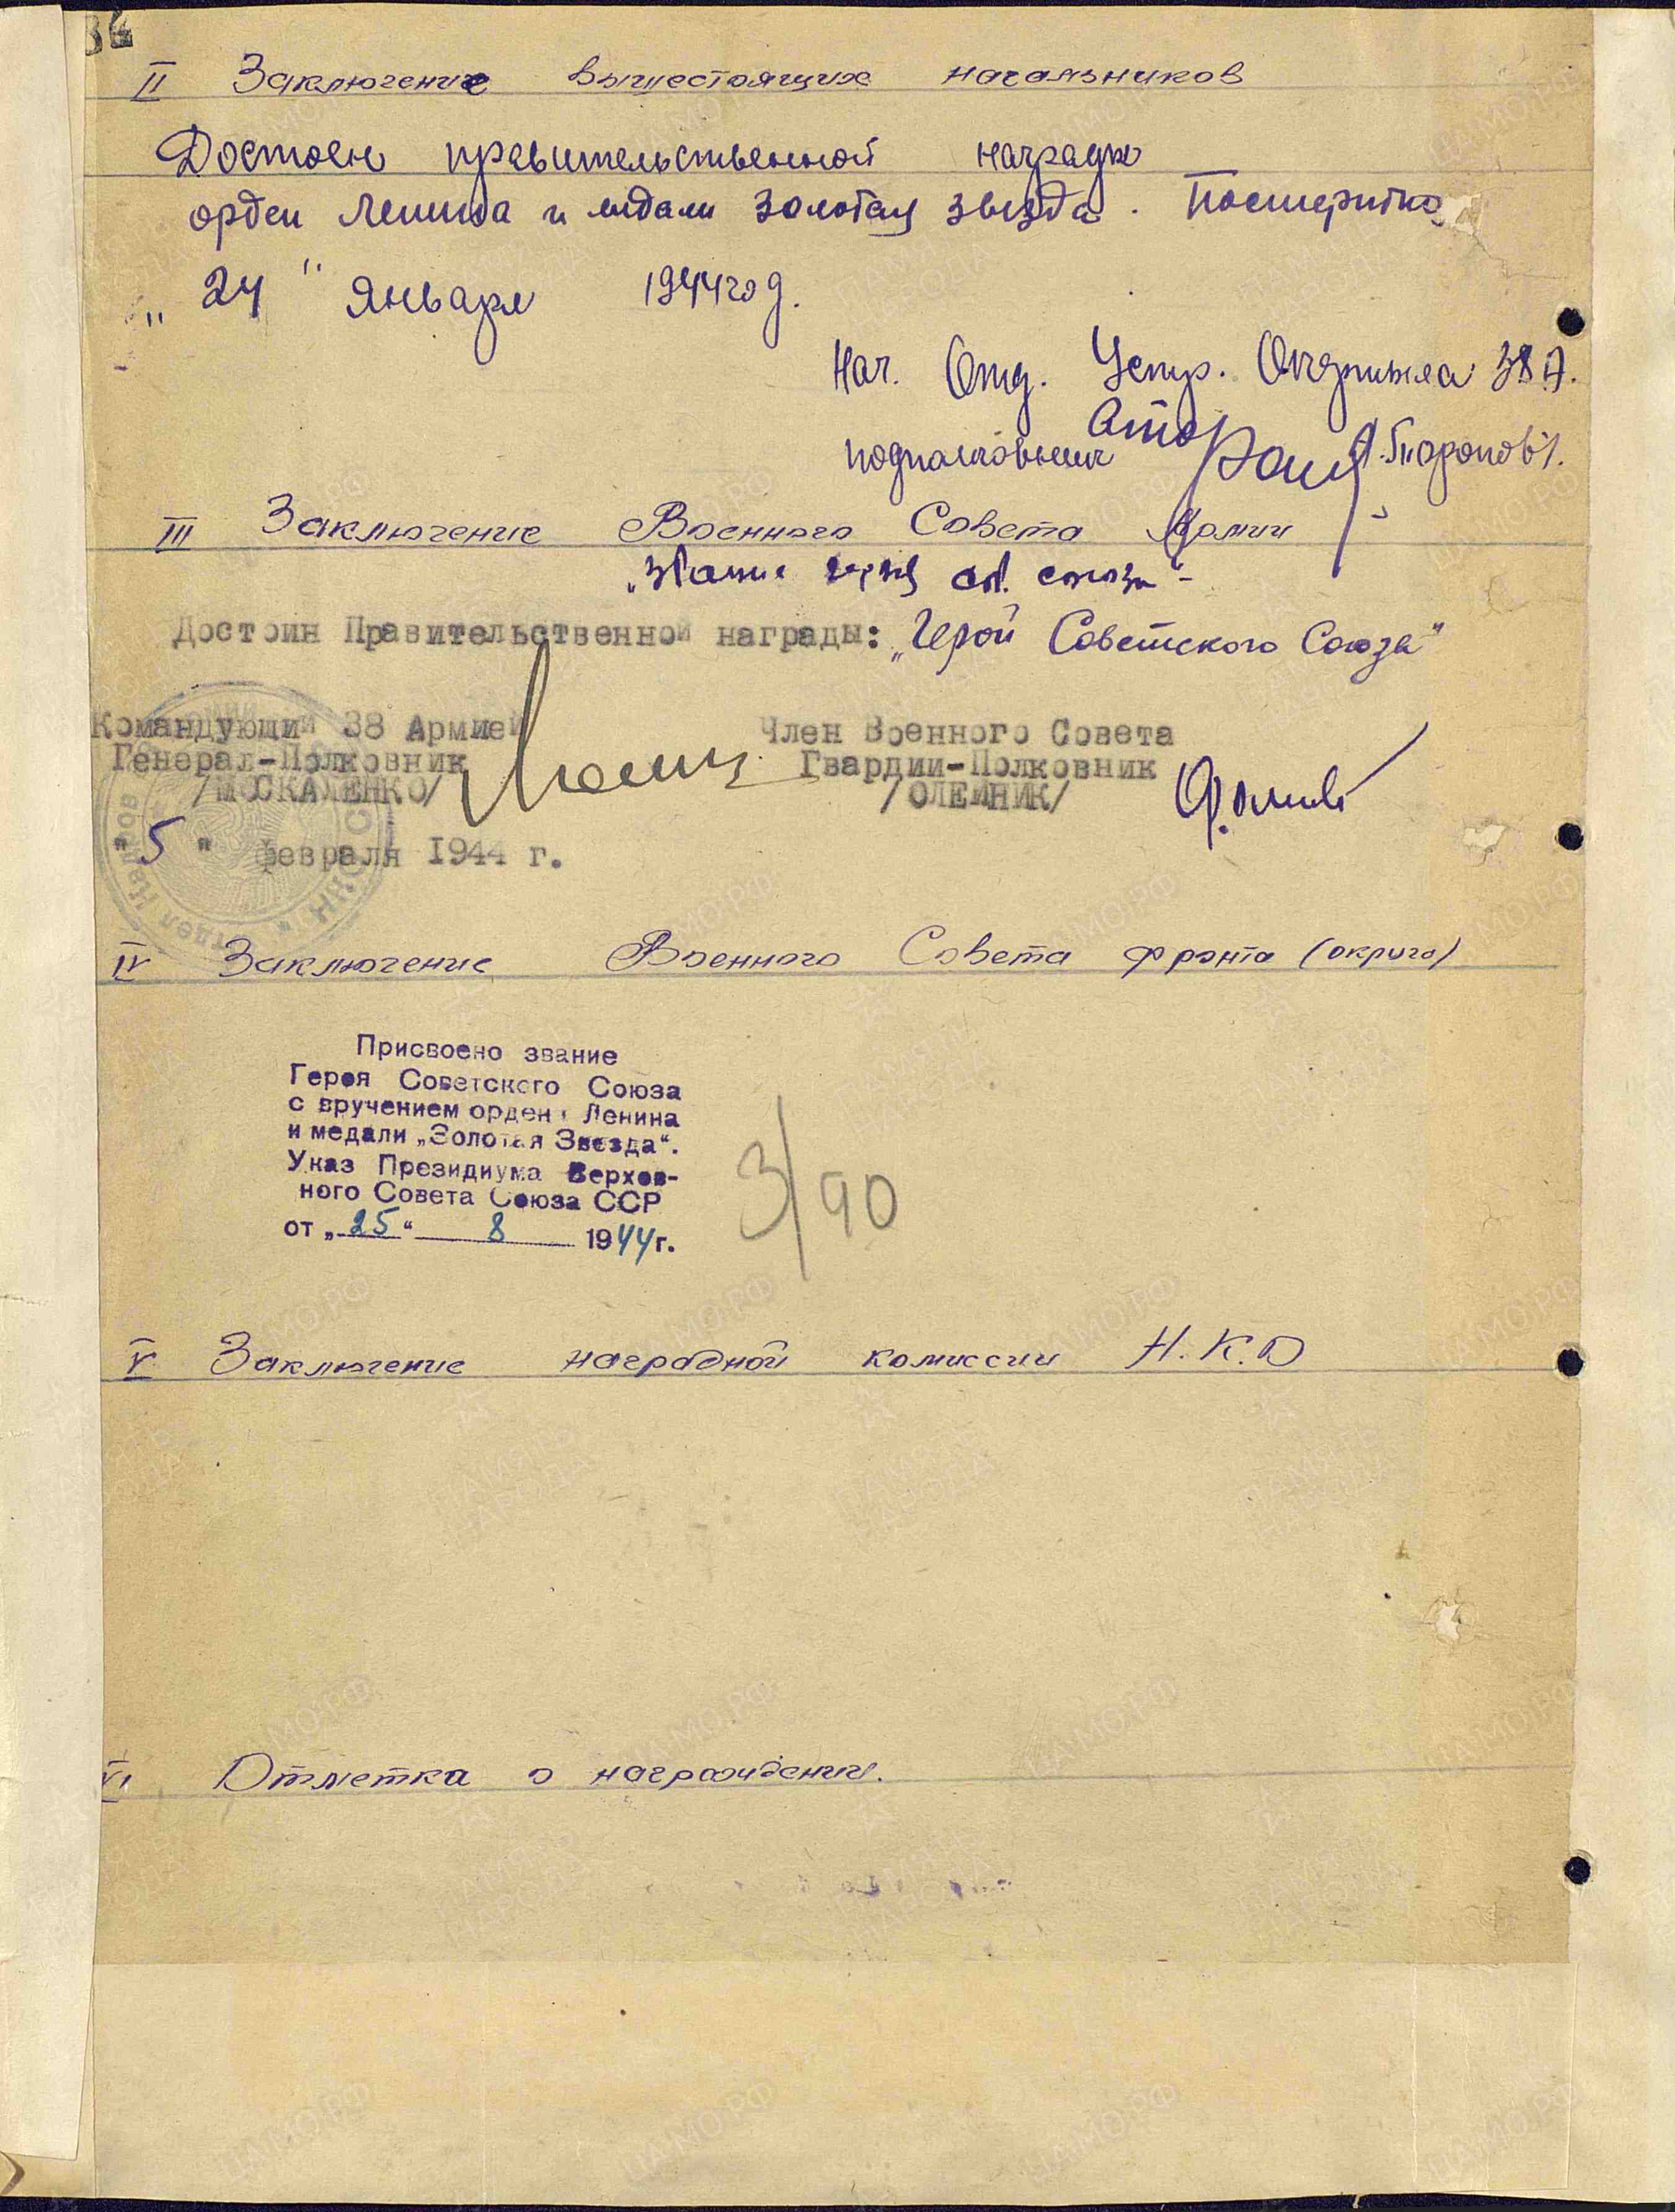 34
II Заключение вышестоящих начальников
Достоен правительственной награды
орден Ленина и медали золотая звезда. Посмертно
„24" Января 1944 год.
Нач. Отд. Укр. 38 А.
подполковник
III Заключение Военного Совета Армии
„звание героя сов. союза"-
Достоин Правительственной награды: „Герой Советского Союза"
Командующий 38 Армией
Генерал-Полковник
/МОСКАЛЕНКО/
Член Военного Совета
Гвардии-Полковник
/ОЛЕЙНИК/
"5" февраля 1944 г.
IV Заключение Военного Совета фронта (округа)
Присвоено звание
Героя Советского Союза
с вручением ордена Ленина
и медали „Золотая Звезда".
Указ Президиума Верхов-
ного Совета Союза ССР
от „25" 8 1944г.
3/90
V Заключение наградной комиссии Н.К.О
VI Отметка о награждении.